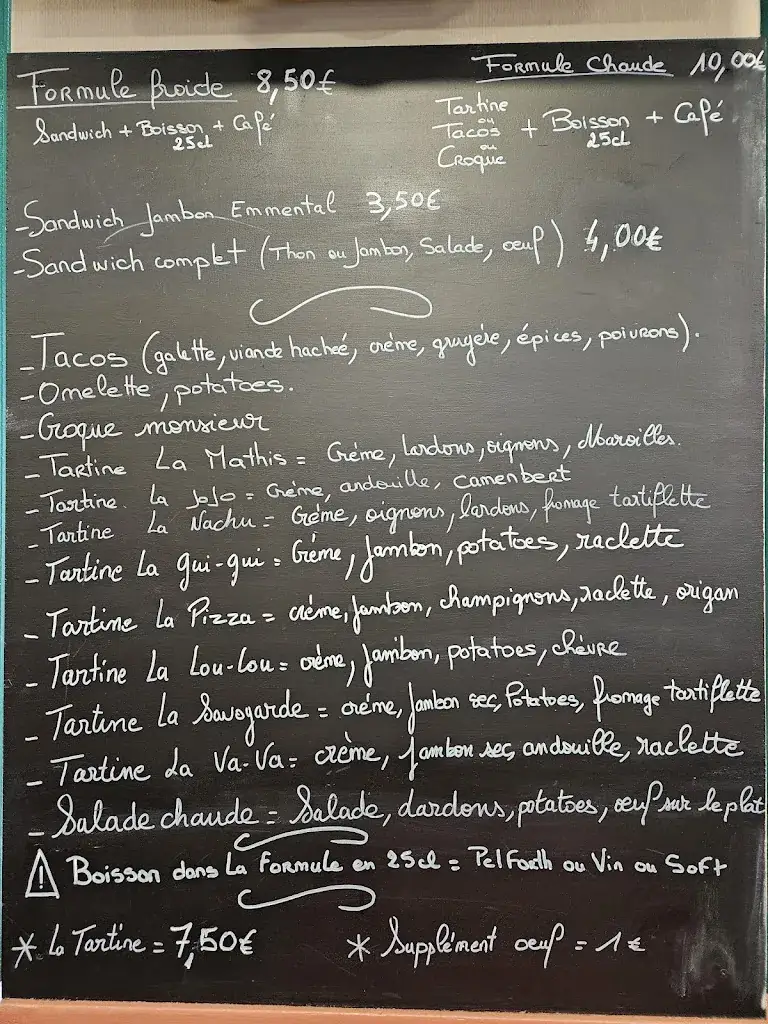 Formule froide 8,50€
Sandwich + Boisson + Café
25cl
Formule Chaude 10,00€
Tartine
ou
Tacos + Boisson + Café
25cl
ou
Croque
- Sandwich Jambon Emmental 3,50€
- Sandwich complet (Thon ou Jambon, Salade, oeuf) 4,00€
- Tacos (galette, viande hacheé, créme, gruyére, épices, poivrons).
- Omelette, potatoes.
- Croque monsieur
- Tartine La Mathis = Créme, lardons, oignons, Maroilles.
- Tartine La JoJo = Créme, andouille, camenbert
- Tartine La Nachu = Créme, oignons, lardons, fromage tartiflette
- Tartine La gui-gui = Créme, Jambon, potatoes, raclette
- Tartine La Pizza = créme, Jambon, champignons, raclette, origan
- Tartine La Lou-Lou = créme, jambon, potatoes, chèvre
- Tartine La Savoyarde = créme, Jambon sec, Potatoes, fromage tartiflette
- Tartine La Va-Va = crème, jambon sec, andouille, raclette
- Salade chaude = Salade, lardons, potatoes, oeuf sur le plat
⚠ Boisson dans La Formule en 25cl = Pelforth ou Vin ou Soft
* La Tartine = 7,50€
* Supplément oeuf = 1€